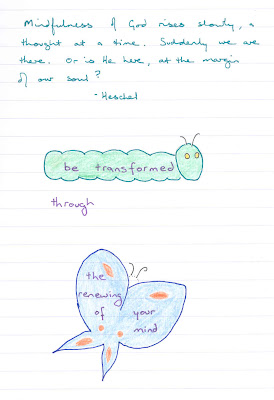 Mindfulness of God rises slowly, a
thought at a time. Suddenly we are
there. Or is He here, at the margin
of our soul?
- Heschel
be transformed
through
the
renewing
of your
mind